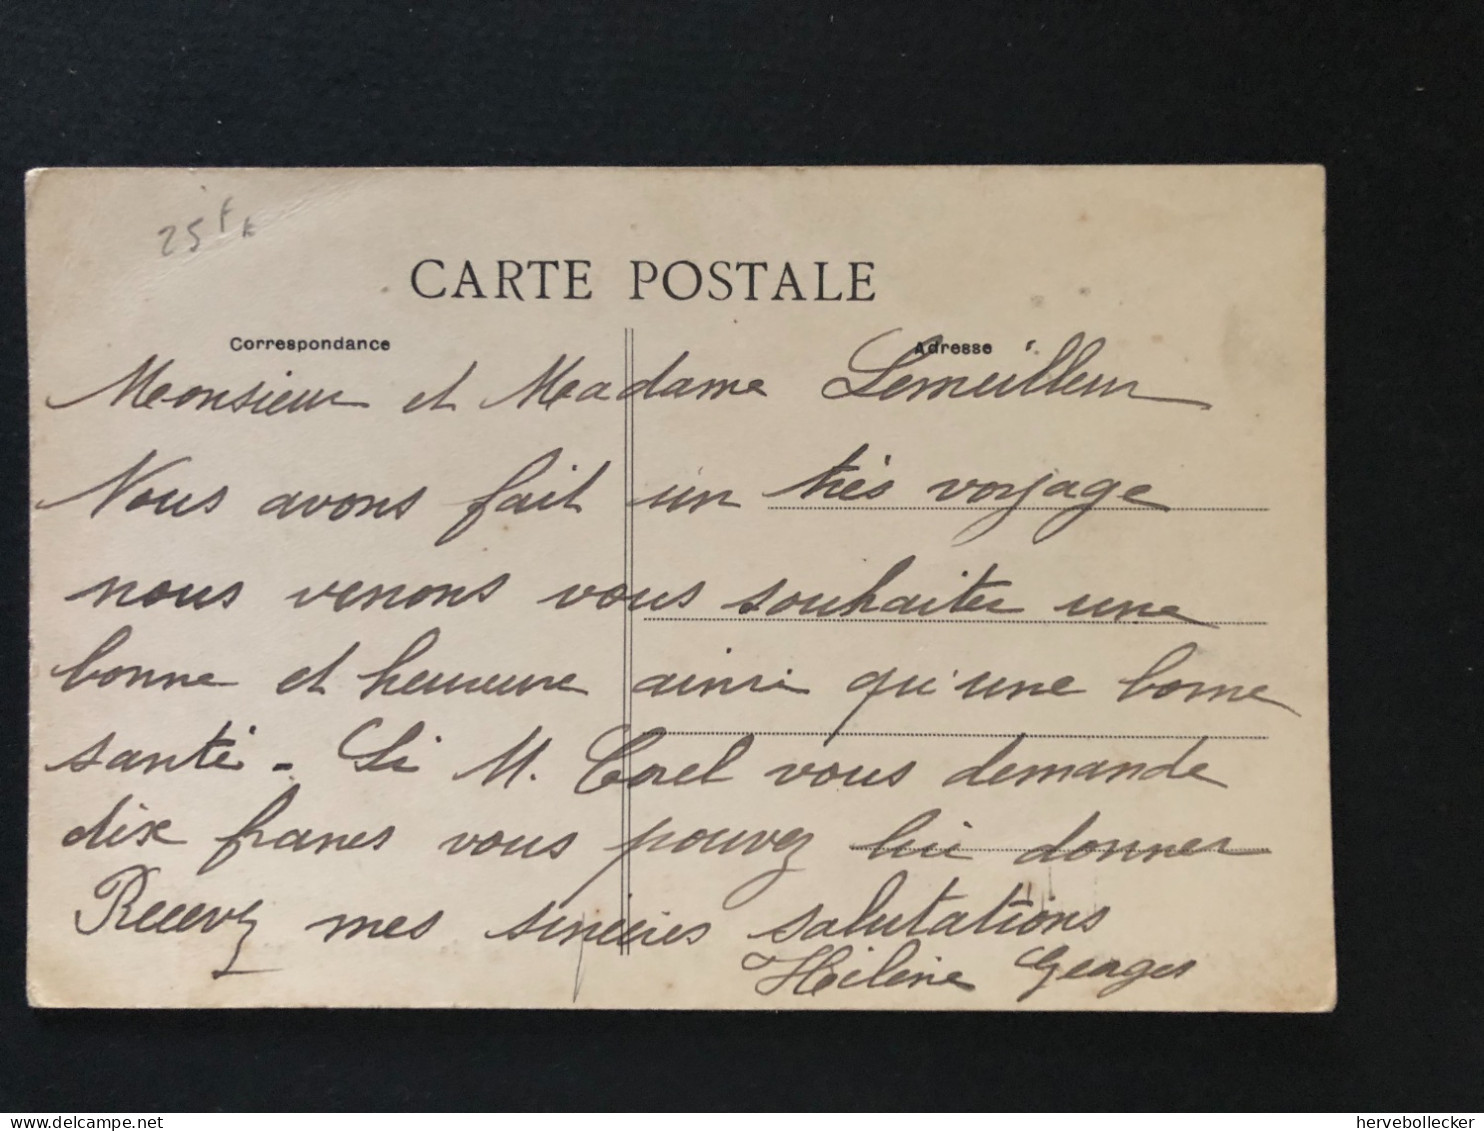 25 f
CARTE POSTALE
Correspondance
Adresse
Monsieur et Madame Lemeilleur
Nous avons fait un très voyage
nous venons vous souhaiter une
bonne et heureuse ainsi qu'une bonne
santé - Si M. Corel vous demande
dix francs vous pouvez lui donner
Recevez mes sincères salutations
Hélène Georges
hervebollecker